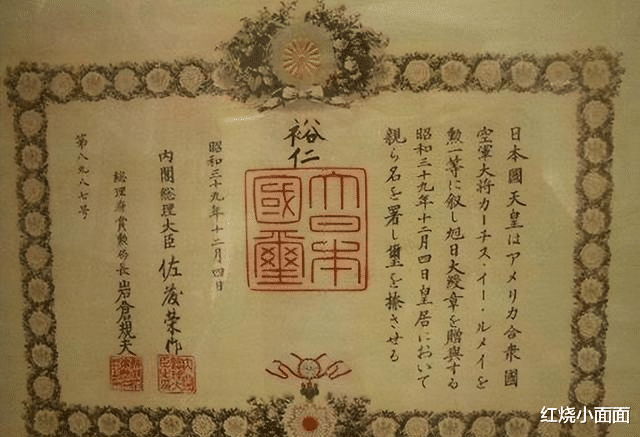 日本國天皇はアメリカ合衆國
空軍大将カーチス・イー・ルメイを
勲一等に叙し旭日大綬章を贈與する
昭和三十九年十二月四日皇居において
親ら名を署し璽を捺させる
裕仁
大日本國璽
昭和三十九年十二月四日
内閣総理大臣 佐藤榮作
総理府賞勲局長 岩倉規夫
第八九八七号
红烧小面面